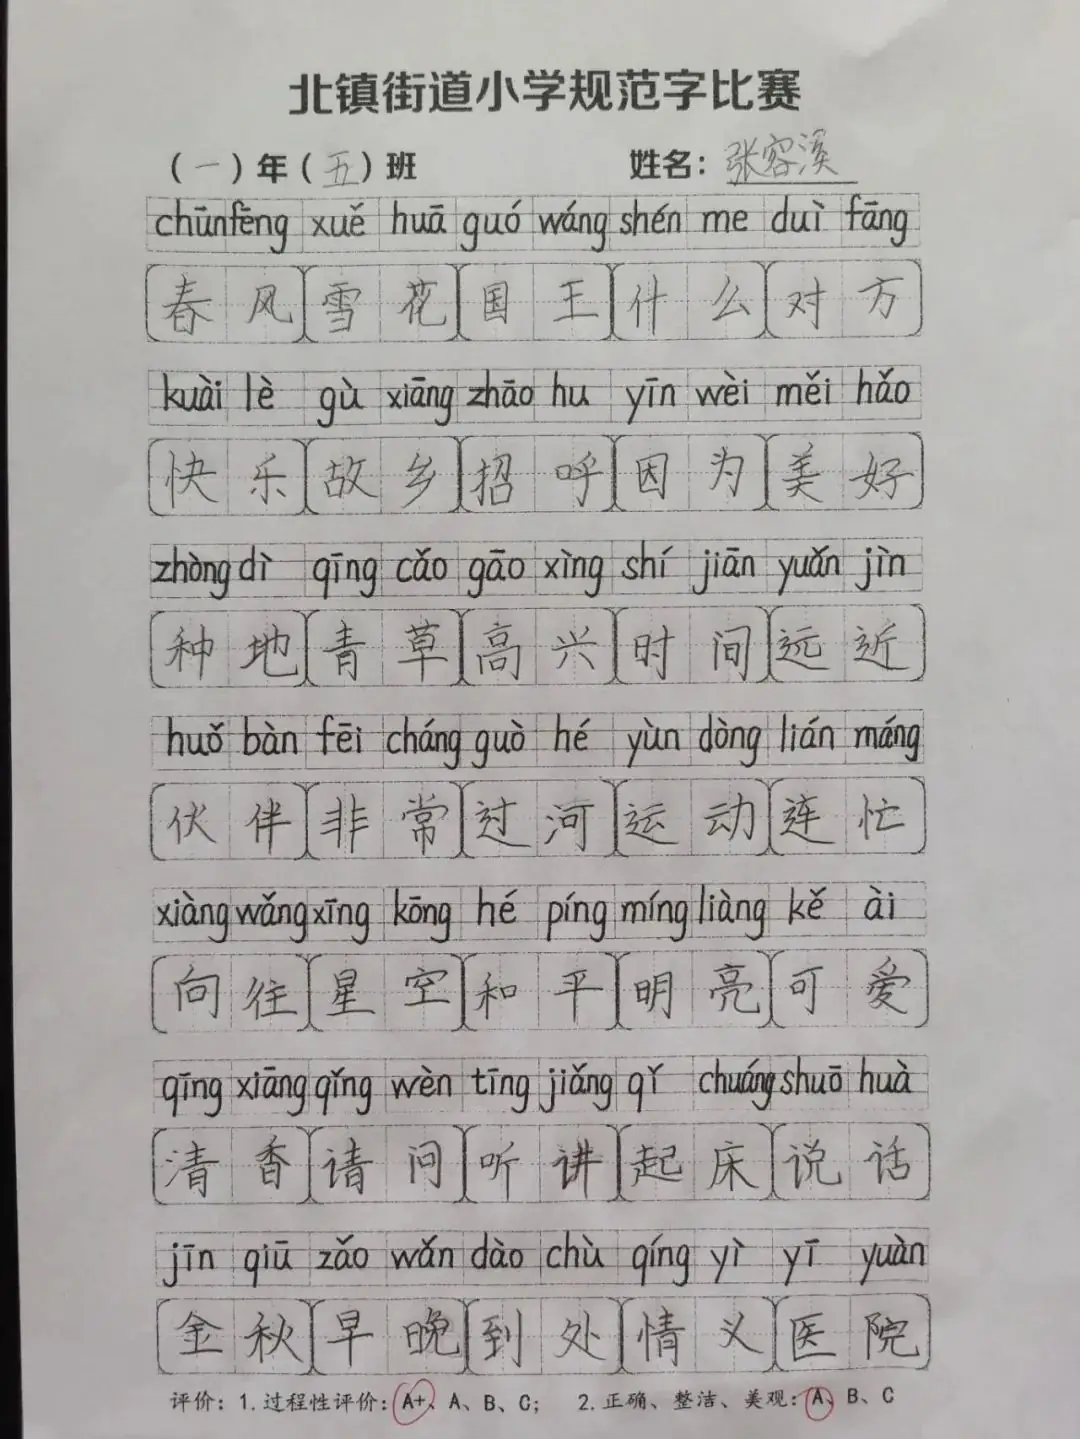 北镇街道小学规范字比赛
（一）年（五）班 姓名：张容溪
chūnfēng xuě huā guó wáng shén me duì fāng
春风 雪花 国王 什么 对方
kuài lè gù xiāng zhāo hu yīn wèi měi hǎo
快乐 故乡 招呼 因为 美好
zhòng dì qīng cǎo gāo xìng shí jiān yuǎn jìn
种地 青草 高兴 时间 远近
huǒ bàn fēi cháng guò hé yùn dòng lián máng
伙伴 非常 过河 运动 连忙
xiàng wǎng xīng kōng hé píng míng liàng kě ài
向往 星空 和平 明亮 可爱
qīng xiāng qǐng wèn tīng jiǎng qǐ chuáng shuō huà
清香 请问 听讲 起床 说话
jīn qiū zǎo wǎn dào chù qíng yì yī yuàn
金秋 早晚 到处 情义 医院
评价：1.过程性评价：A+、A、B、C； 2.正确、整洁、美观：A、B、C